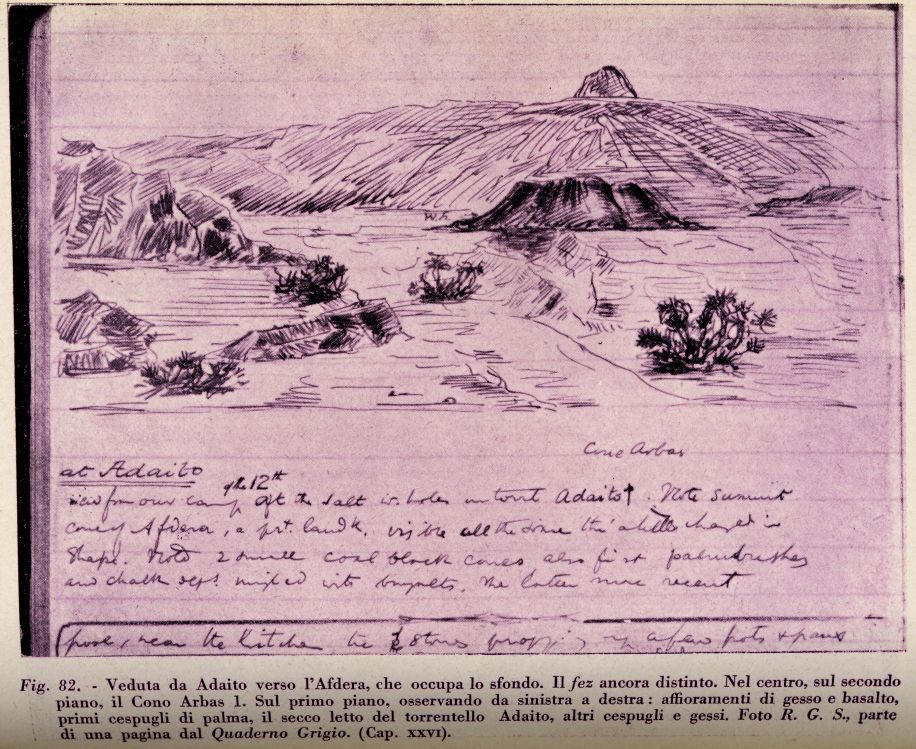 W.h.
Cone Arbas
at Adaito
of the 12th
view from our camp at the salt w. holes in torrt Adaito†. Note summit
cone of Afdera, a grt. landk, visible all the time tho' a little changed in
shape. Note 2 small coal black cones also first palmbushes
and chalk depts. mixed with basalts, the latter more recent
near the kitchen, the 2 stones propping up a few pots & pans
Fig. 82. - Veduta da Adaito verso l'Afdera, che occupa lo sfondo. Il fez ancora distinto. Nel centro, sul secondo
piano, il Cono Arbas 1. Sul primo piano, osservando da sinistra a destra: affioramenti di gesso e basalto,
primi cespugli di palma, il secco letto del torrentello Adaito, altri cespugli e gessi. Foto R. G. S., parte
di una pagina dal Quaderno Grigio. (Cap. XXVI).